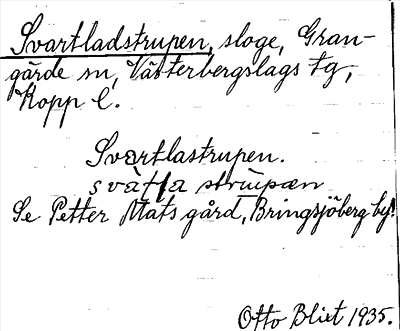 Svartladstrupen, sloge, Gran-
gärde sn, Västerbergslags tg,
Kopp l.
Svartlastrupen.
svàṭa strupan
Se Petter Mats gård, Bringsjöberg by!
Otto Blixt 1935.